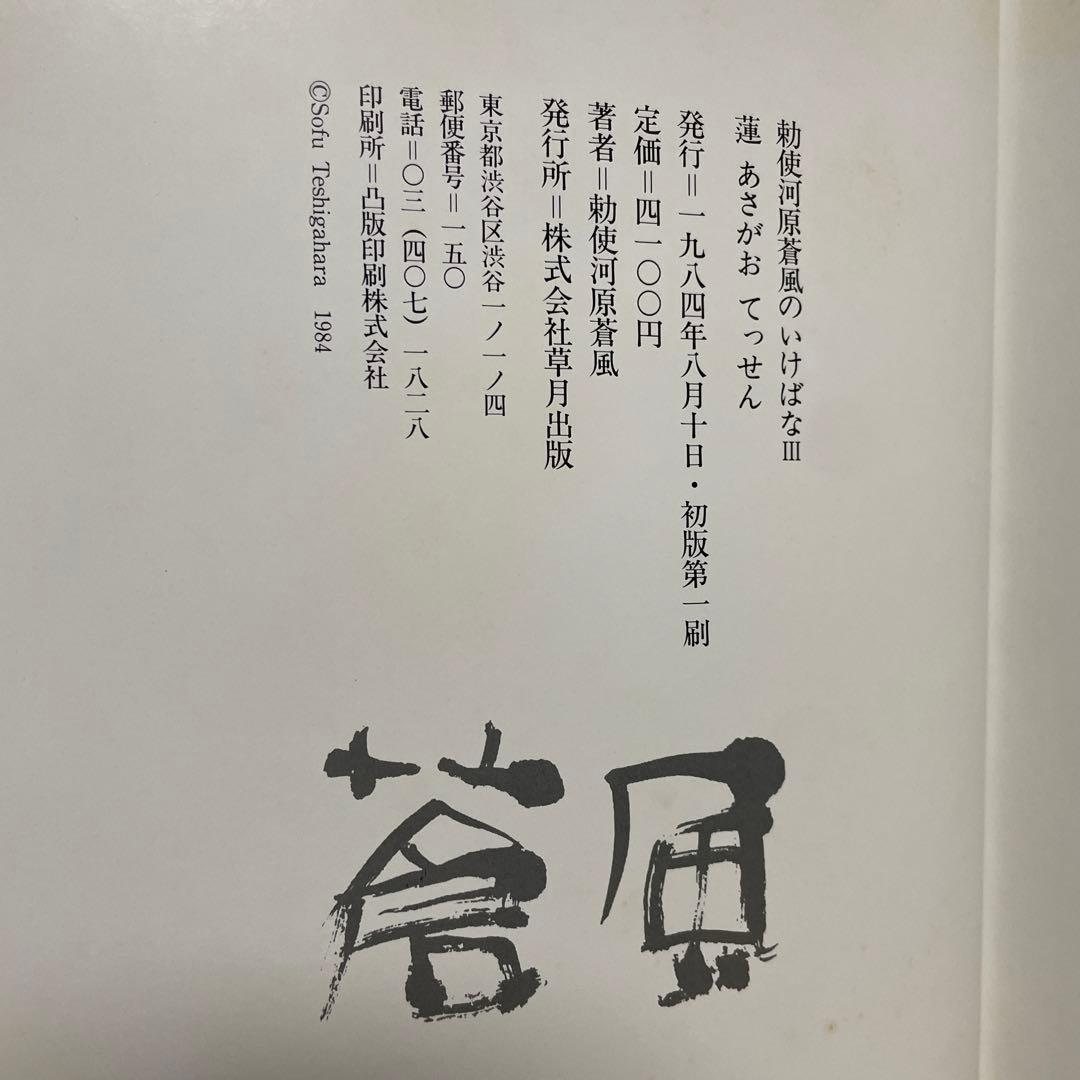 勅使河原蒼風のいけばなⅢ
蓮 あさがお てっせん
発行＝一九八四年八月十日・初版第一刷
定価＝四一〇〇円
著者＝勅使河原蒼風
発行所＝株式会社草月出版
東京都渋谷区渋谷一ノ一ノ四
郵便番号＝一五〇
電話＝〇三（四〇七）一八二八
印刷所＝凸版印刷株式会社
©Sofu Teshigahara 1984
蒼風